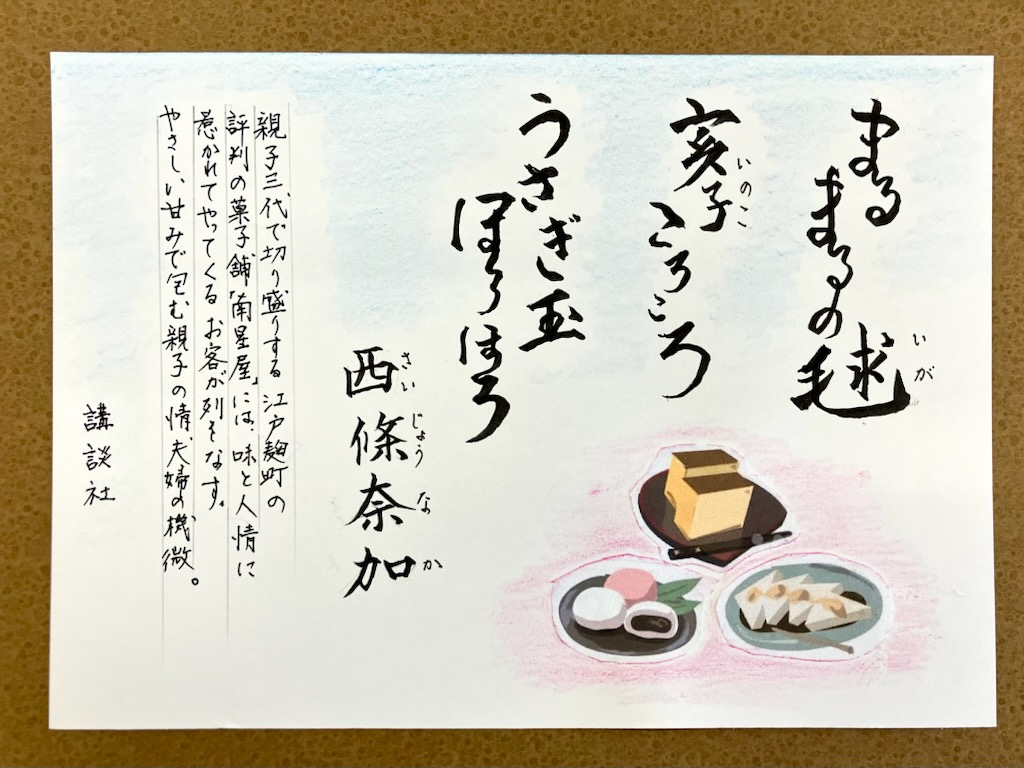 まる
まるの毬
いが
亥子
いのこ
ころころ
うさぎ玉
ほろほろ
西條奈加
さいじょうなか
親子三代で切り盛りする江戸麹町の
評判の菓子舗〝南星屋〟には、味と人情に
惹かれてやってくるお客が列をなす。
やさしい甘みで包む親子の情、夫婦の機微。
講談社